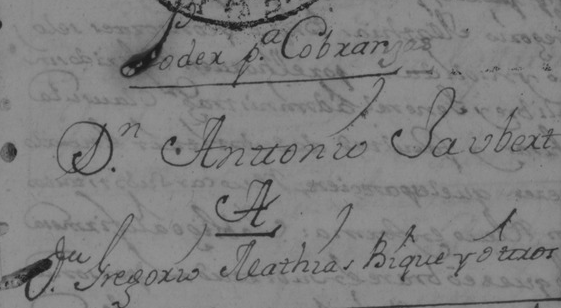 Poder p.ª Cobranzas
D.n Antonio Saubert
A
Gregorio Mathias Bique y otros